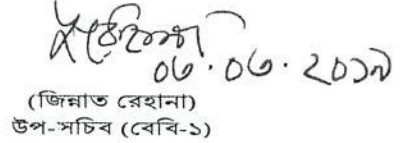 ০৬.০৬.২০১৯
(জিন্নাত রেহানা)
উপ-সচিব (বেবি-১)